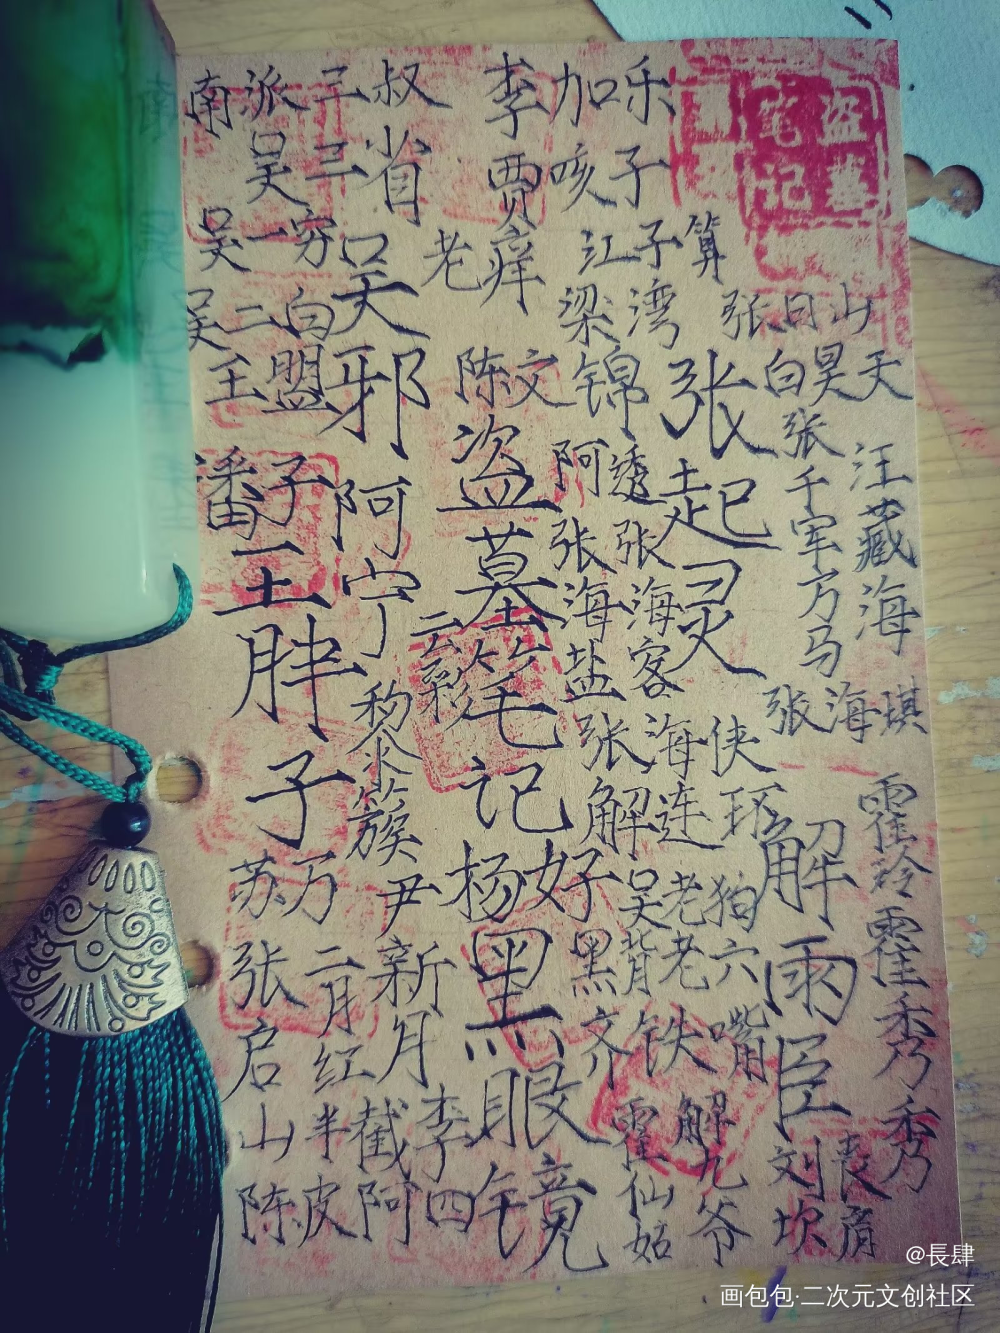 南派三叔
吴三省
吴一穷
吴二白
王盟
吴邪
潘子
王胖子
阿宁
云彩
黎簇
苏万
张启山
二月红
尹新月
半截李
陈皮阿四
李加乐
贾咳子
老痒
江子算
梁湾
陈文锦
盗墓笔记
阿透
张海盐
张海客
张海侠
杨好
解连环
吴老狗
黑背老六
黑眼镜
齐铁嘴
霍仙姑
解九爷
盗墓笔记
张日山
张起灵
白昊天
张千军万马
汪藏海
张海琪
解雨臣
霍玲
霍秀秀
刘坎
@長肆
画包包·二次元文创社区